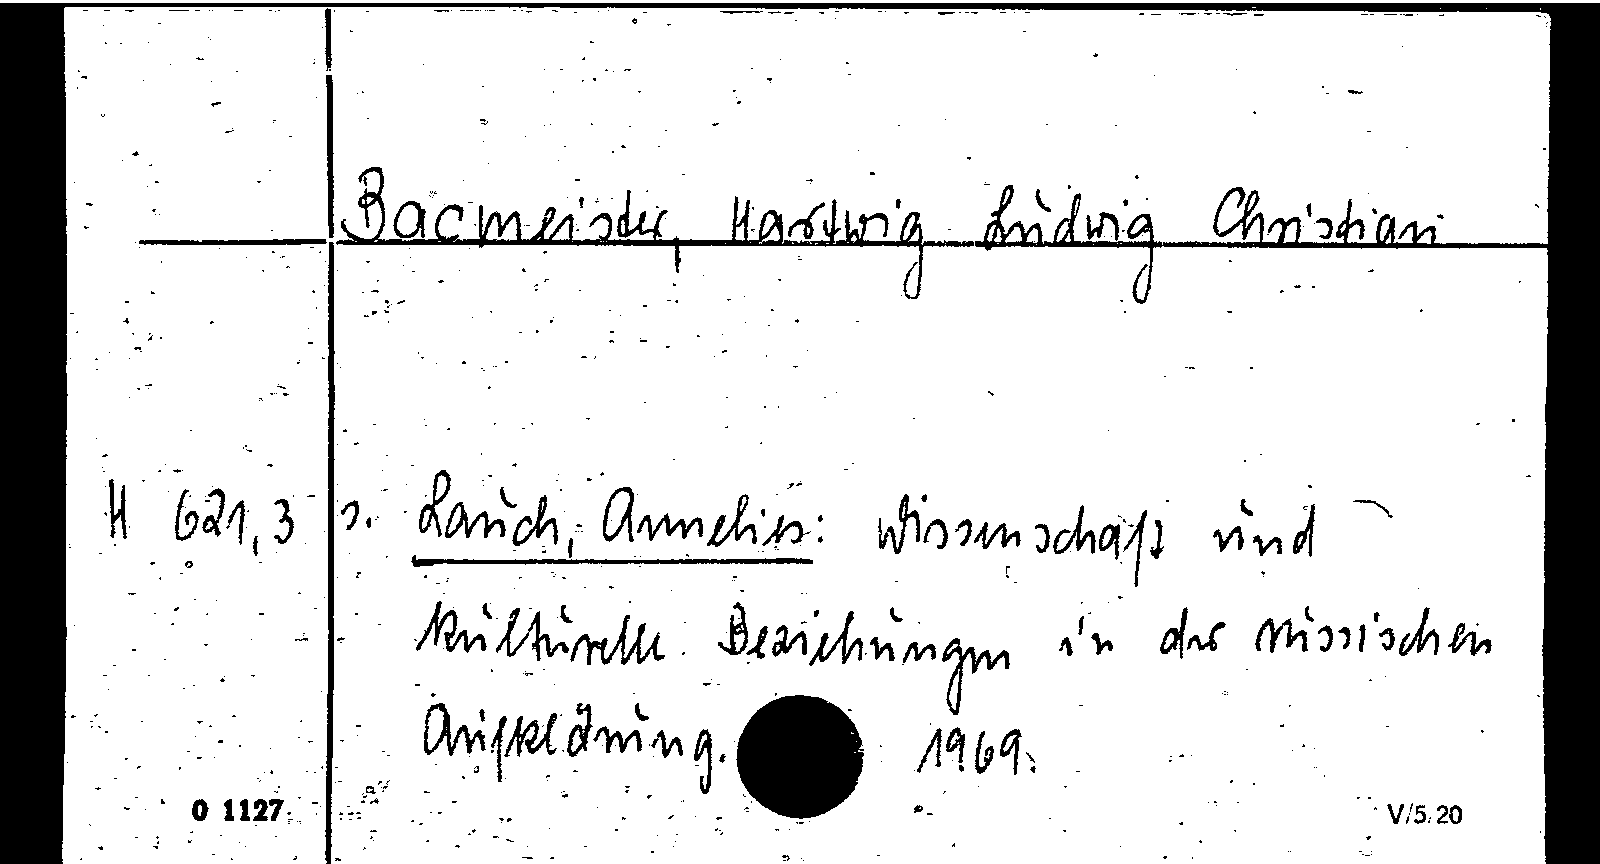 Bacmeister, Hartwig Ludwig Christian
H 621,3 s. Lauch, Annelies: Wissenschaft und
kulturelle Beziehungen in der russischen
Aufklärung. 1969.
O 1127 V/5.20